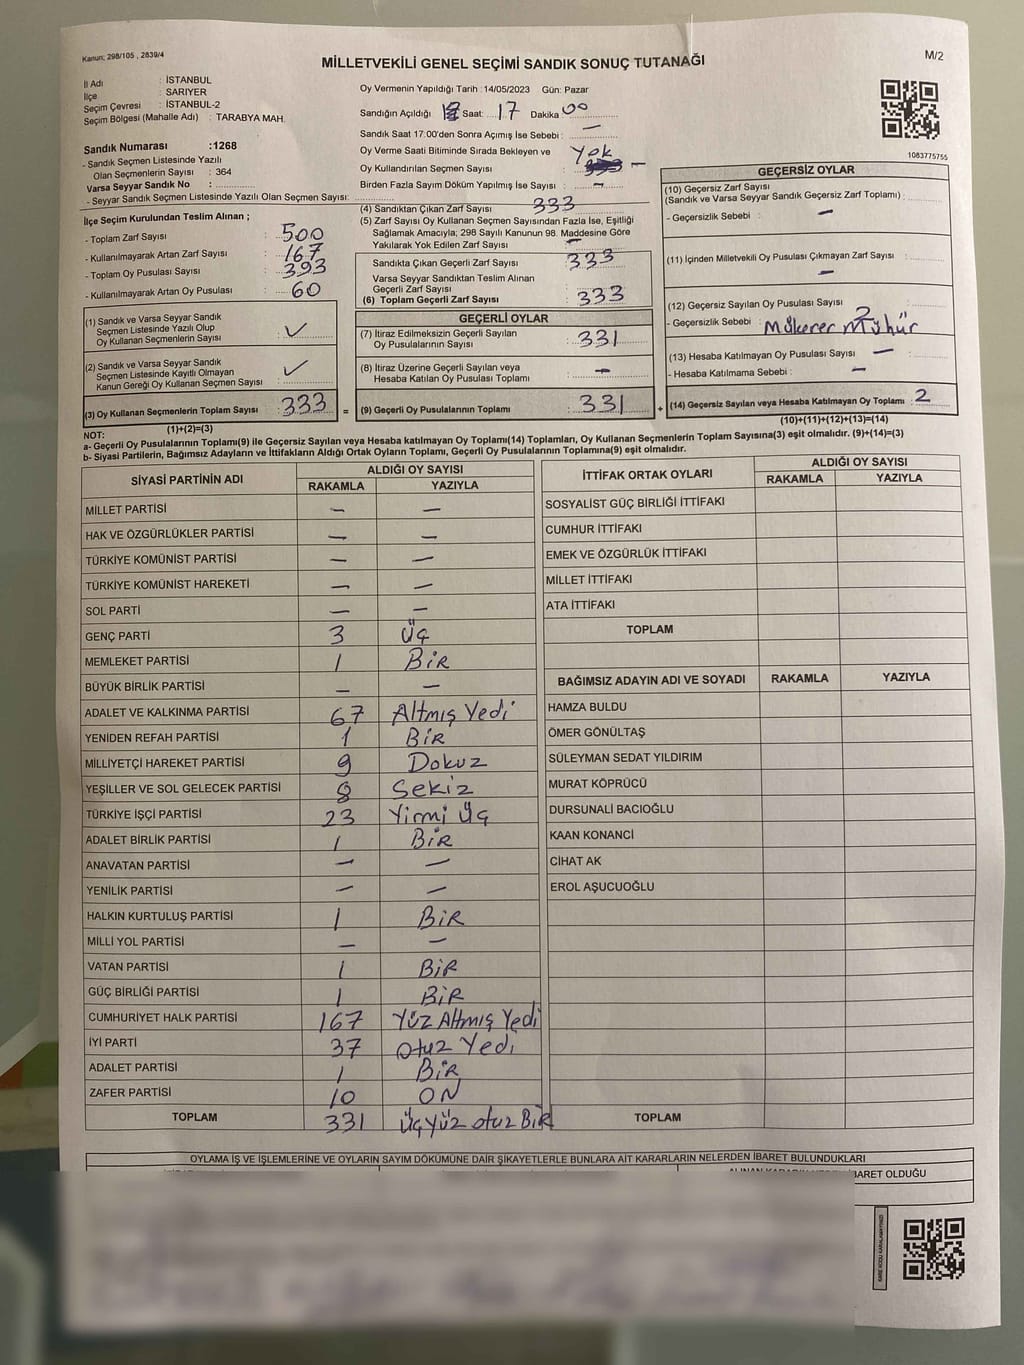 Kanun; 298/105 , 2839/4
MİLLETVEKİLİ GENEL SEÇİMİ SANDIK SONUÇ TUTANAĞI
M/2
İl Adı : İSTANBUL
İlçe : SARIYER
Seçim Çevresi : İSTANBUL-2
Seçim Bölgesi (Mahalle Adı) : TARABYA MAH.
Sandık Numarası :1268
- Sandık Seçmen Listesinde Yazılı
Olan Seçmenlerin Sayısı : 364
Varsa Seyyar Sandık No :
- Seyyar Sandık Seçmen Listesinde Yazılı Olan Seçmen Sayısı:
Oy Vermenin Yapıldığı Tarih :14/05/2023 Gün: Pazar
Sandığın Açıldığı Saat: 17 Dakika 00
Sandık Saat 17:00'den Sonra Açımış İse Sebebi : —
Oy Verme Saati Bitiminde Sırada Bekleyen ve Yok
Oy Kullandırılan Seçmen Sayısı : —
Birden Fazla Sayım Döküm Yapılmış İse Sayısı : —
1083775755
İlçe Seçim Kurulundan Teslim Alınan ;
- Toplam Zarf Sayısı : 500
- Kullanılmayarak Artan Zarf Sayısı : 167
- Toplam Oy Pusulası Sayısı : 393
- Kullanılmayarak Artan Oy Pusulası : 60
(1) Sandık ve Varsa Seyyar Sandık
Seçmen Listesinde Yazılı Olup
Oy Kullanan Seçmenlerin Sayısı : ✓
(2) Sandık ve Varsa Seyyar Sandık
Seçmen Listesinde Kayıtlı Olmayan
Kanun Gereği Oy Kullanan Seçmen Sayısı : ✓
(3) Oy Kullanan Seçmenlerin Toplam Sayısı : 333
(1)+(2)=(3)
(4) Sandıktan Çıkan Zarf Sayısı : 333
(5) Zarf Sayısı Oy Kullanan Seçmen Sayısından Fazla İse, Eşitliği
Sağlamak Amacıyla; 298 Sayılı Kanunun 98. Maddesine Göre
Yakılarak Yok Edilen Zarf Sayısı : —
Sandıkta Çıkan Geçerli Zarf Sayısı : 333
Varsa Seyyar Sandıktan Teslim Alınan
Geçerli Zarf Sayısı :
(6) Toplam Geçerli Zarf Sayısı : 333
GEÇERLİ OYLAR
(7) İtiraz Edilmeksizin Geçerli Sayılan
Oy Pusulalarının Sayısı : 331
(8) İtiraz Üzerine Geçerli Sayılan veya
Hesaba Katılan Oy Pusulası Toplamı : —
= (9) Geçerli Oy Pusulalarının Toplamı : 331
GEÇERSİZ OYLAR
(10) Geçersiz Zarf Sayısı
(Sandık ve Varsa Seyyar Sandık Geçersiz Zarf Toplamı) :
- Geçersizlik Sebebi : —
(11) İçinden Milletvekili Oy Pusulası Çıkmayan Zarf Sayısı :
—
(12) Geçersiz Sayılan Oy Pusulası Sayısı : 2
- Geçersizlik Sebebi : Mükerer Mühür
(13) Hesaba Katılmayan Oy Pusulası Sayısı : —
- Hesaba Katılmama Sebebi : —
+ (14) Geçersiz Sayılan veya Hesaba Katılmayan Oy Toplamı : 2
(10)+(11)+(12)+(13)=(14)
NOT:
a- Geçerli Oy Pusulalarının Toplamı(9) ile Geçersiz Sayılan veya Hesaba katılmayan Oy Toplamı(14) Toplamları, Oy Kullanan Seçmenlerin Toplam Sayısına(3) eşit olmalıdır. (9)+(14)=(3)
b- Siyasi Partilerin, Bağımsız Adayların ve İttifakların Aldığı Ortak Oyların Toplamı, Geçerli Oy Pusulalarının Toplamına(9) eşit olmalıdır.
SİYASİ PARTİNİN ADI ALDIĞI OY SAYISI
RAKAMLA YAZIYLA
MİLLET PARTİSİ — —
HAK VE ÖZGÜRLÜKLER PARTİSİ — —
TÜRKİYE KOMÜNİST PARTİSİ — —
TÜRKİYE KOMÜNİST HAREKETİ — —
SOL PARTİ — —
GENÇ PARTİ 3 Üç
MEMLEKET PARTİSİ 1 BİR
BÜYÜK BİRLİK PARTİSİ — —
ADALET VE KALKINMA PARTİSİ 67 Altmış Yedi
YENİDEN REFAH PARTİSİ 1 BİR
MİLLİYETÇİ HAREKET PARTİSİ 9 Dokuz
YEŞİLLER VE SOL GELECEK PARTİSİ 8 Sekiz
TÜRKİYE İŞÇİ PARTİSİ 23 Yirmi Üç
ADALET BİRLİK PARTİSİ 1 BİR
ANAVATAN PARTİSİ — —
YENİLİK PARTİSİ — —
HALKIN KURTULUŞ PARTİSİ 1 BİR
MİLLİ YOL PARTİSİ — —
VATAN PARTİSİ 1 BİR
GÜÇ BİRLİĞİ PARTİSİ 1 BİR
CUMHURİYET HALK PARTİSİ 167 Yüz Altmış Yedi
İYİ PARTİ 37 Otuz Yedi
ADALET PARTİSİ 1 BİR
ZAFER PARTİSİ 10 ON
TOPLAM 331 Üçyüz otuz BİR
İTTİFAK ORTAK OYLARI ALDIĞI OY SAYISI
RAKAMLA YAZIYLA
SOSYALİST GÜÇ BİRLİĞİ İTTİFAKI
CUMHUR İTTİFAKI
EMEK VE ÖZGÜRLÜK İTTİFAKI
MİLLET İTTİFAKI
ATA İTTİFAKI
TOPLAM
BAĞIMSIZ ADAYIN ADI VE SOYADI RAKAMLA YAZIYLA
HAMZA BULDU
ÖMER GÖNÜLTAŞ
SÜLEYMAN SEDAT YILDIRIM
MURAT KÖPRÜCÜ
DURSUNALİ BACIOĞLU
KAAN KONANCİ
CİHAT AK
EROL AŞUCUOĞLU
TOPLAM
OYLAMA İŞ VE İŞLEMLERİNE VE OYLARIN SAYIM DÖKÜMÜNE DAİR ŞİKAYETLERLE BUNLARA AİT KARARLARIN NELERDEN İBARET BULUNDUKLARI
İBARET OLDUĞU
KARE KODU KARALAMAYINIZ!